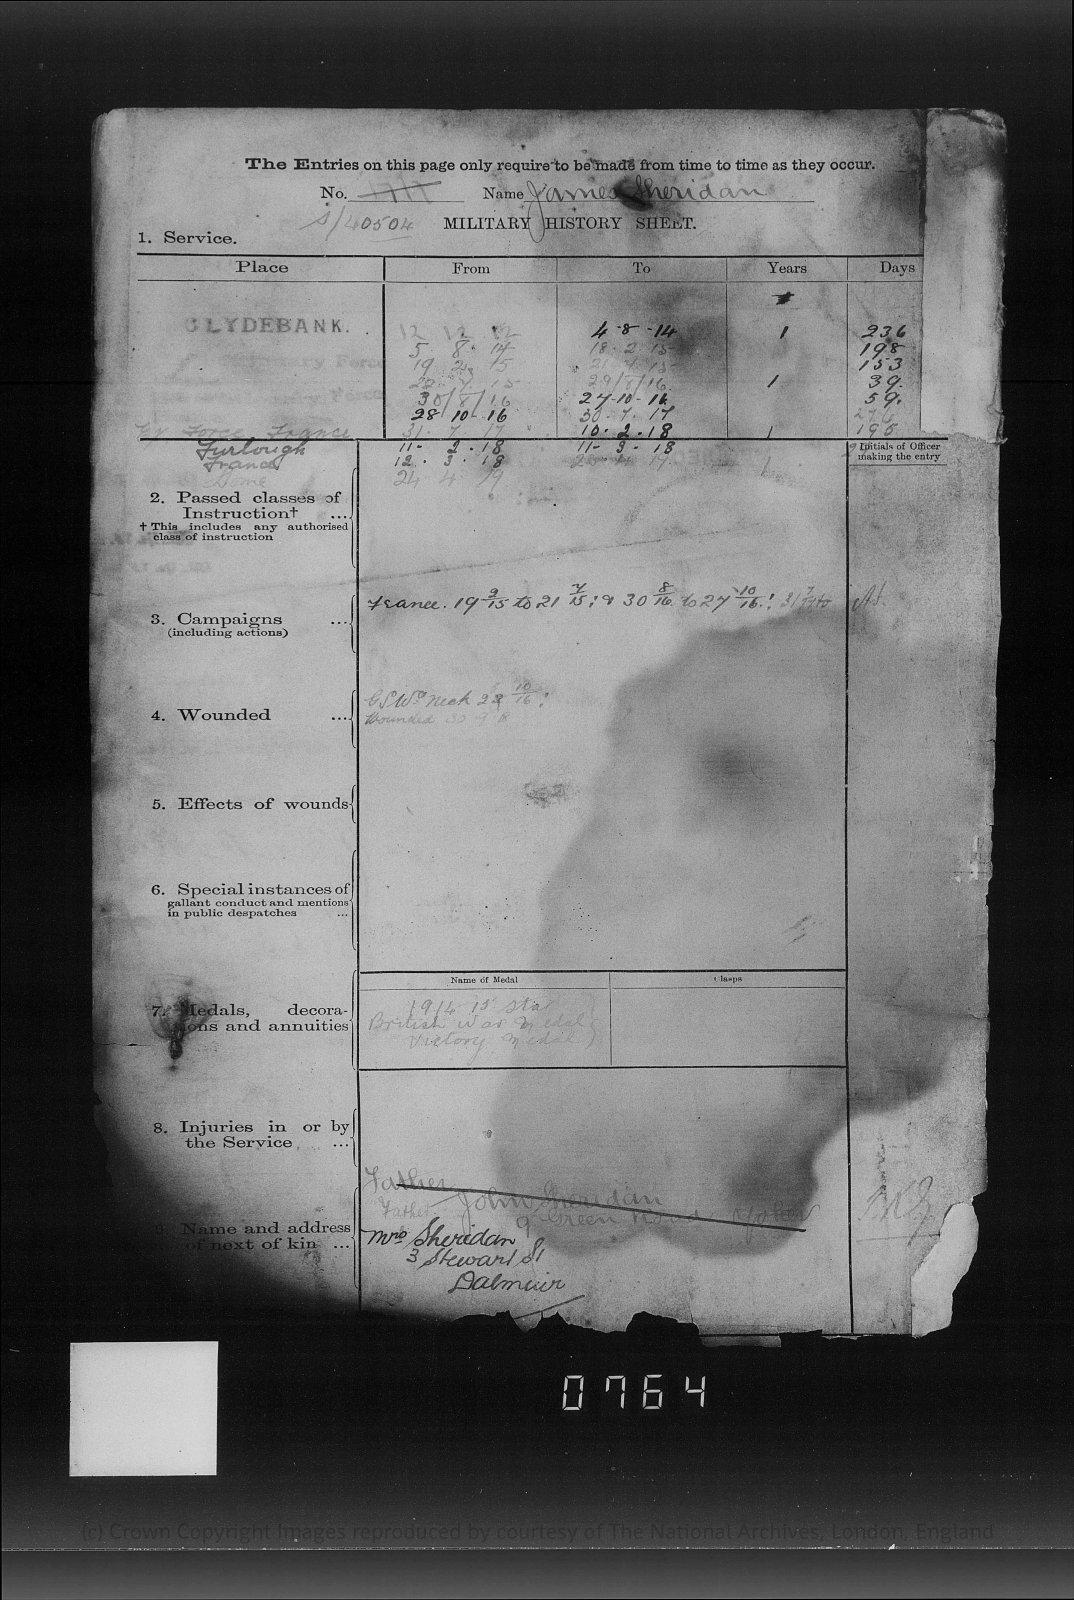 The Entries on this page only require to be made from time to time as they occur.
No. Name James Sheridan
S/40504 MILITARY HISTORY SHEET.
1. Service.
Place From To Years Days
CLYDEBANK. 12 12 12 4-8-14 1 236
5 8. 14 18. 2 15 198
19 2 15 21 7 15 153
22 7 15 29/8/16 1 39.
30/8/16 27-10-16 59.
28/10-16 30. 7. 17 276
Force France 31. 7 17 10. 2. 18 1 195
Furlough 11- 2. 18 11- 3- 18
France 12. 3. 18
Home 24 4 19
Initials of Officer making the entry
2. Passed classes of Instruction† ...
† This includes any authorised class of instruction
3. Campaigns ...
(including actions)
France. 19 2/15 to 21 7/15; & 30 8/16 to 27 10/16; 31 7/17 to
4. Wounded ...
GSWd neck 10/16;
Wounded 30 9
5. Effects of wounds
6. Special instances of gallant conduct and mentions in public despatches ...
Name of Medal Clasps
7. Medals, decorations and annuities
1914 15 Star
British War Medal
Victory Medal
8. Injuries in or by the Service ...
9. Name and address of next of kin ...
Father
Father John Sheridan
9 Green Road
Mrs Sheridan
3 Stewart St
Dalmuir
0764
(c) Crown Copyright Images reproduced by courtesy of The National Archives, London, England